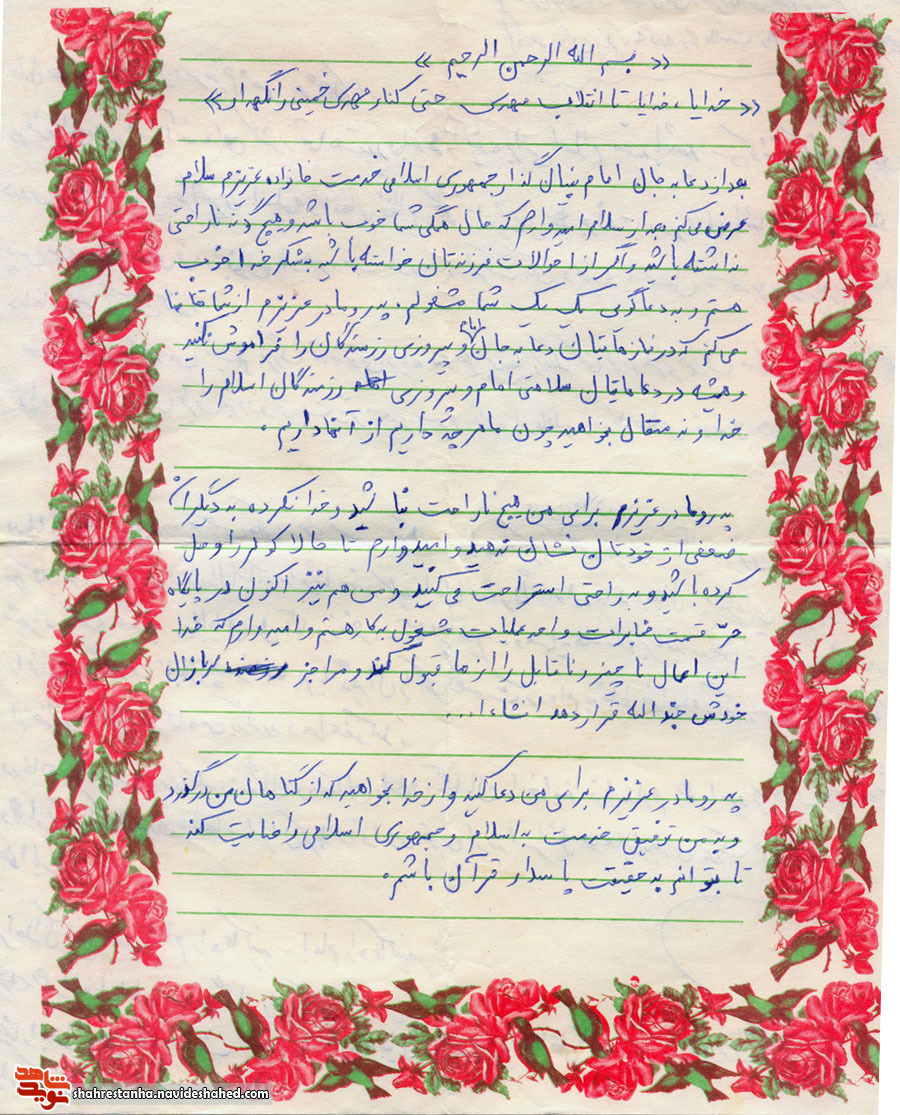 « بسم الله الرحمن الرحیم »
« خدایا، خدایا تا انقلاب مهدی حتی کنار مهدی خمینی را نگهدار »
بعد از دعا به جان امام بنیان گذار جمهوری اسلامی خدمت خانواده عزیزم سلام
عرض می کنم بعد از سلام امیدوارم که حال همگی شما خوب باشد و هیچ گونه ناراحتی
نداشته باشید و اگر از احوالات فرزندتان خواسته باشید بشکر خدا خوب
هستم و به دعاگوی یک یک شما مشغولم. پدر و مادر عزیزم از شما تقاضا
می کنم که در نمازهایتان دعا به جان امام و پیروزی رزمندگان را فراموش نکنید
و همیشه در دعاهایتان سلامتی امام و پیروزی رزمندگان اسلام را
خداوند متعال بخواهید چون ما هر چه داریم از آنها داریم.
پدر و مادر عزیزم برای من هیچ ناراحت نباشید و خدا نکرده به دیگران
ضعفی از خودتان نشان ندهید و امیدوارم تا حالا کولر را وصل
کرده باشید و به راحتی استراحت می کنید و من هم نیز اکنون در پایگاه
حرّ قسمت مخابرات واحد عملیات مشغول به کار هستم و امیدوارم که خدا
این اعمال ناچیز و ناقابل را از ما قبول کند و مرا جز سربازان
خودش جند الله قرار دهد انشاءا...
پدر و مادر عزیزم برای من دعا کنید و از خدا بخواهید که از گناهان من درگذرد
و به من توفیق خدمت به اسلام و جمهوری اسلامی را عنایت کند
تا بتوانم به حقیقت پاسدار قرآن باشم.
نوید شاهد
shahrestanha.navideshahed.com